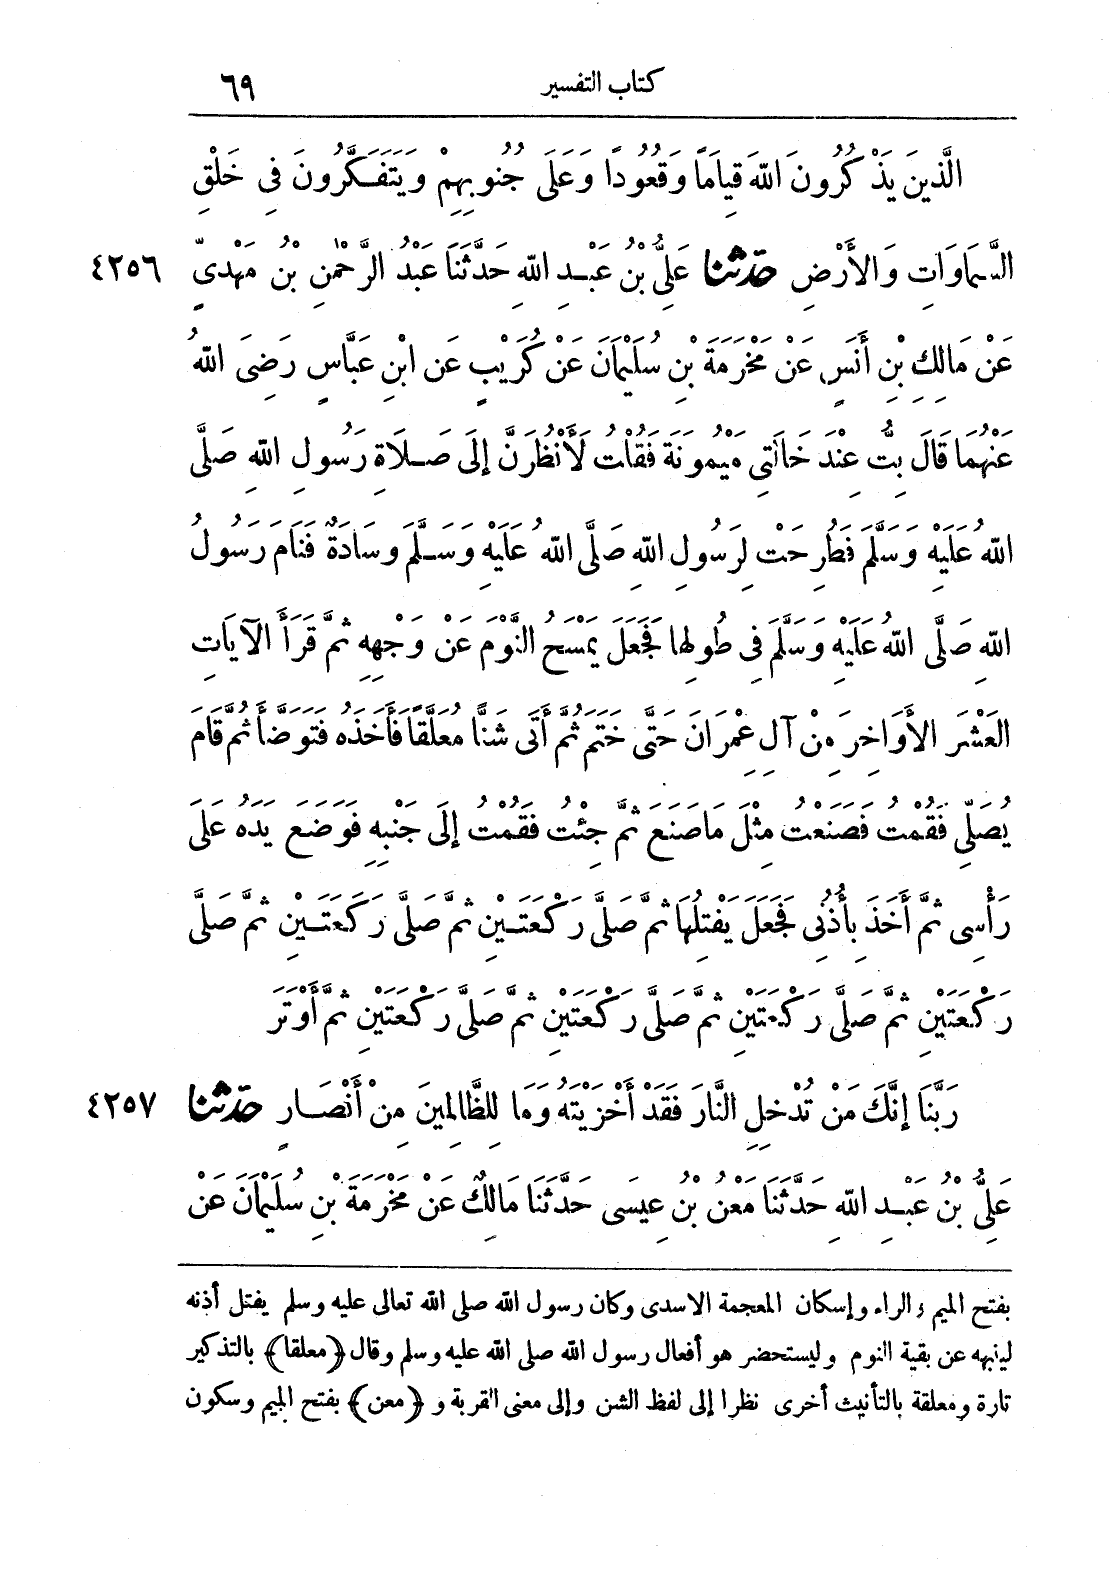 كتاب التفسير ٦٩
الَّذِينَ يَذْكُرُونَ اللهَ قِيَامًا وَقُعُودًا وَعَلَى جُنُوبِهِمْ وَيَتَفَكَّرُونَ فِى خَلْقِ
السَّمَاوَاتِ وَالأَرْضِ حَدَّثَنَا عَلِىُّ بْنُ عَبْدِ اللهِ حَدَّثَنَا عَبْدُ الرَّحْمٰنِ بْنُ مَهْدِىٍّ ٤٢٥٦
عَنْ مَالِكِ بْنِ أَنَسٍ عَنْ مَخْرَمَةَ بْنِ سُلَيْمَانَ عَنْ كُرَيْبٍ عَنِ ابْنِ عَبَّاسٍ رَضِىَ اللهُ
عَنْهُمَا قَالَ بِتُّ عِنْدَ خَالَتِى مَيْمُونَةَ فَقُلْتُ لَأَنْظُرَنَّ إِلَى صَلَاةِ رَسُولِ اللهِ صَلَّى
اللهُ عَلَيْهِ وَسَلَّمَ فَطُرِحَتْ لِرَسُولِ اللهِ صَلَّى اللهُ عَلَيْهِ وَسَلَّمَ وِسَادَةٌ فَنَامَ رَسُولُ
اللهِ صَلَّى اللهُ عَلَيْهِ وَسَلَّمَ فِى طُولِهَا فَجَعَلَ يَمْسَحُ النَّوْمَ عَنْ وَجْهِهِ ثُمَّ قَرَأَ الآيَاتِ
الْعَشْرَ الأَوَاخِرَ مِنْ آلِ عِمْرَانَ حَتَّى خَتَمَ ثُمَّ أَتَى شَنًّا مُعَلَّقًا فَأَخَذَهُ فَتَوَضَّأَ ثُمَّ قَامَ
يُصَلِّى فَقُمْتُ فَصَنَعْتُ مِثْلَ مَا صَنَعَ ثُمَّ جِئْتُ فَقُمْتُ إِلَى جَنْبِهِ فَوَضَعَ يَدَهُ عَلَى
رَأْسِى ثُمَّ أَخَذَ بِأُذُنِى فَجَعَلَ يَفْتِلُهَا ثُمَّ صَلَّى رَكْعَتَيْنِ ثُمَّ صَلَّى رَكْعَتَيْنِ ثُمَّ صَلَّى
رَكْعَتَيْنِ ثُمَّ صَلَّى رَكْعَتَيْنِ ثُمَّ صَلَّى رَكْعَتَيْنِ ثُمَّ صَلَّى رَكْعَتَيْنِ ثُمَّ أَوْتَرَ
رَبَّنَا إِنَّكَ مَنْ تُدْخِلِ النَّارَ فَقَدْ أَخْزَيْتَهُ وَمَا لِلظَّالِمِينَ مِنْ أَنْصَارٍ حَدَّثَنَا ٤٢٥٧
عَلِىُّ بْنُ عَبْدِ اللهِ حَدَّثَنَا مَعْنُ بْنُ عِيسَى حَدَّثَنَا مَالِكٌ عَنْ مَخْرَمَةَ بْنِ سُلَيْمَانَ عَنْ
بفتح الميم والراء وإسكان المعجمة الاسدى وكان رسول الله صلى الله تعالى عليه وسلم يفتل أذنه
لينبهه عن بقية النوم وليستحضر هو أفعال رسول الله صلى الله عليه وسلم وقال ﴿معلقا﴾ بالتذكير
تارة ومعلقة بالتأنيث أخرى نظرا إلى لفظ الشن وإلى معنى القربة و ﴿معن﴾ بفتح الميم وسكون